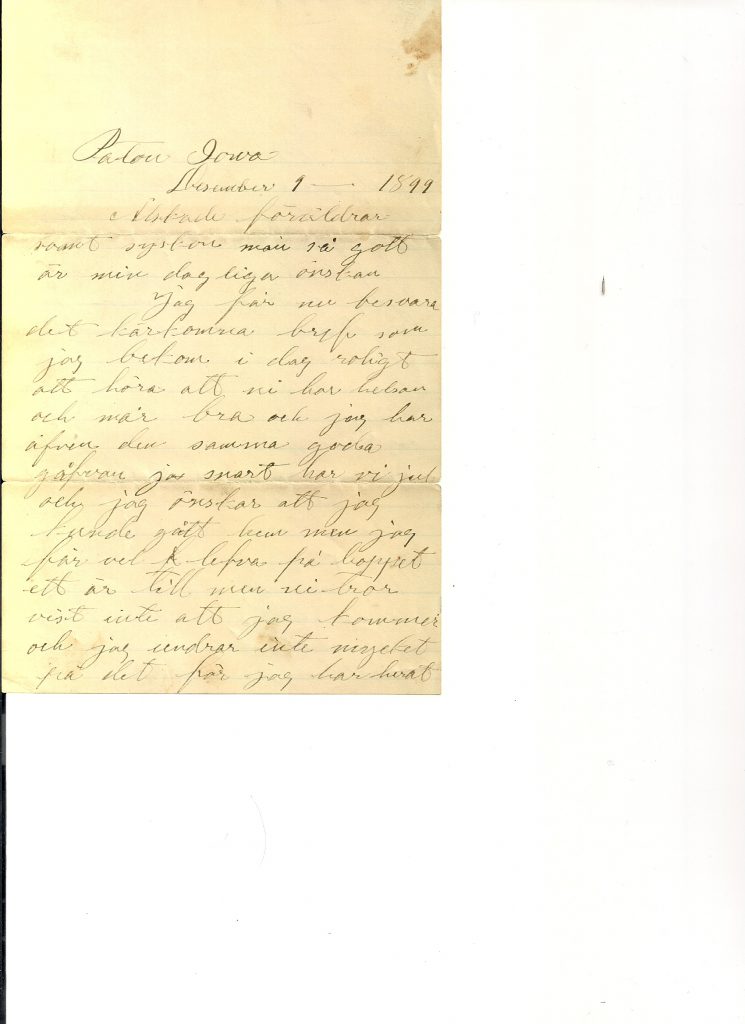 Paton Iowa
Desember 9 — 1899
Älskade föräldrar
samt syskon må så gott
är min dagliga önskan
Jag får nu besvara
det kärkomna bref som
jag bekom i dag roligt
att höra att ni har helsan
och mår bra och jag har
äfven den samma goda
gåfvan ja snart har vi jul
och jag önskar att jag
kunde gått hem men jag
får vel lefva på hoppet
ett år till men ni tror
vist inte att jag kommer
och jag undrar inte mycket
på det för jag har